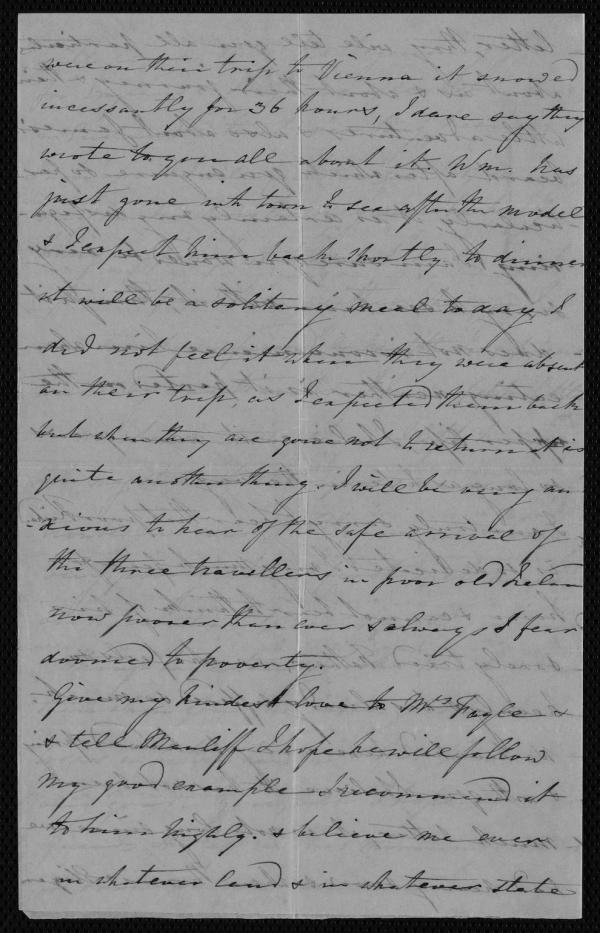 were on their trip to Vienna it snowed
incessantly for 36 hours, I dare say they
wrote to you all about it. Wm. has
just gone into town to see after the model
& I expect him back shortly to dinner
it will be a solitary meal today I
did not feel it when they were absent
on their trip, as I expected them back
but when they are gone not to return it is
quite another thing. I will be very an
-xious to hear of the safe arrival of
the three travellers in poor old Ireland
now poorer than ever & always I fear
doomed to poverty.
Give my kindest love to Mrs Fayle &
& tell Manliff I hope he will follow
my good example I recommend it
to him highly. & believe me ever
in whatever land & in whatever state